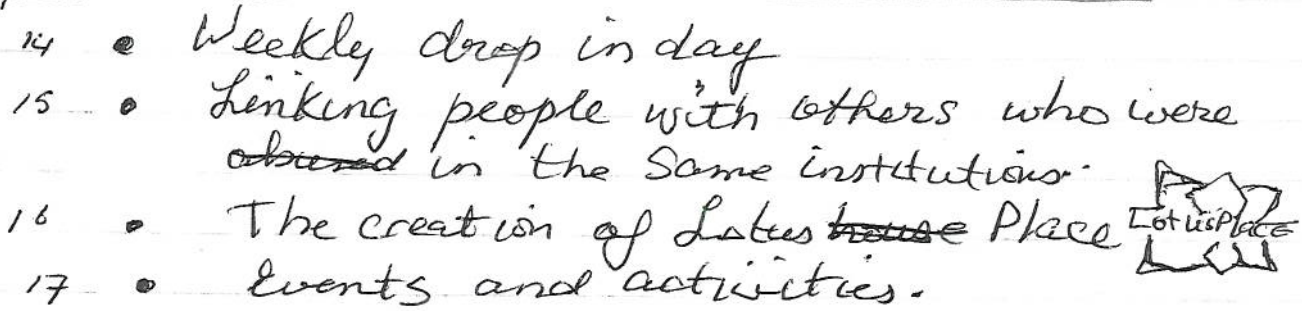 14 • Weekly drop in day
15 • Linking people with others who were
abused in the same institutions.
16 • The creation of Lotus house Place Lotus Place
17 • Events and activities.